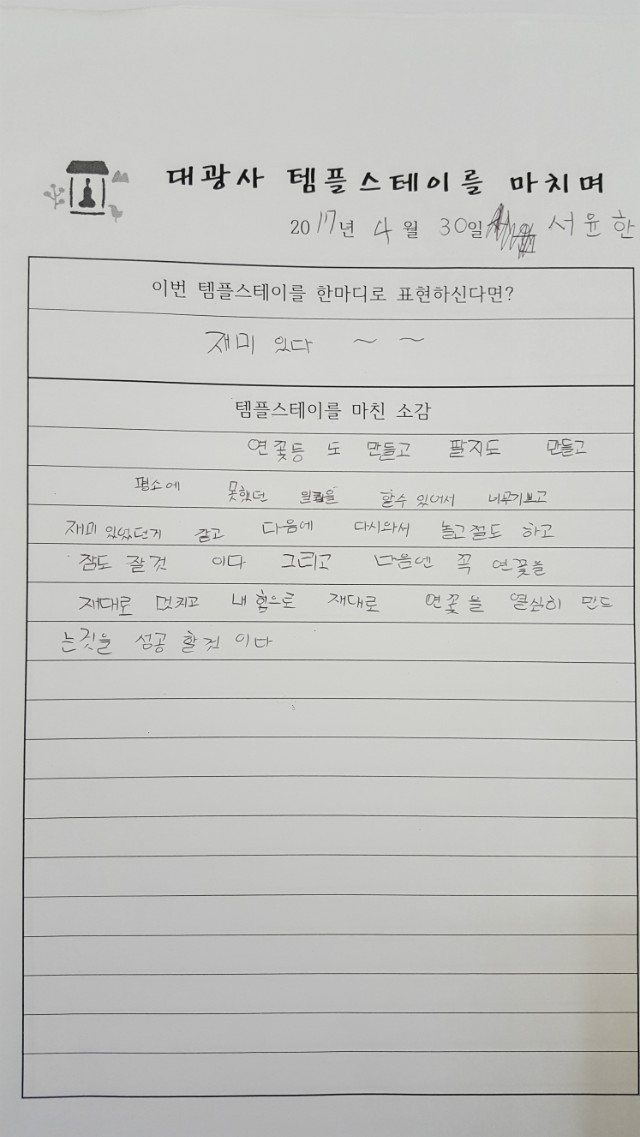 대광사 템플스테이를 마치며
2017년 4월 30일 서윤한
이번 템플스테이를 한마디로 표현하신다면?
재미 있다 ~ ~
템플스테이를 마친 소감
연꽃등 도 만들고 팔지도 만들고
평소에 못했던 할수 있어서 너무기쁘고
재미 있었던거 같고 다음에 다시와서 놀고절도 하고
잠도 잘것 이다 그리고 다음엔 꼭 연꽃을
재대로 내 힘으로 재대로 연꽃을 열심히 만드
는것을 성공 할것 이다